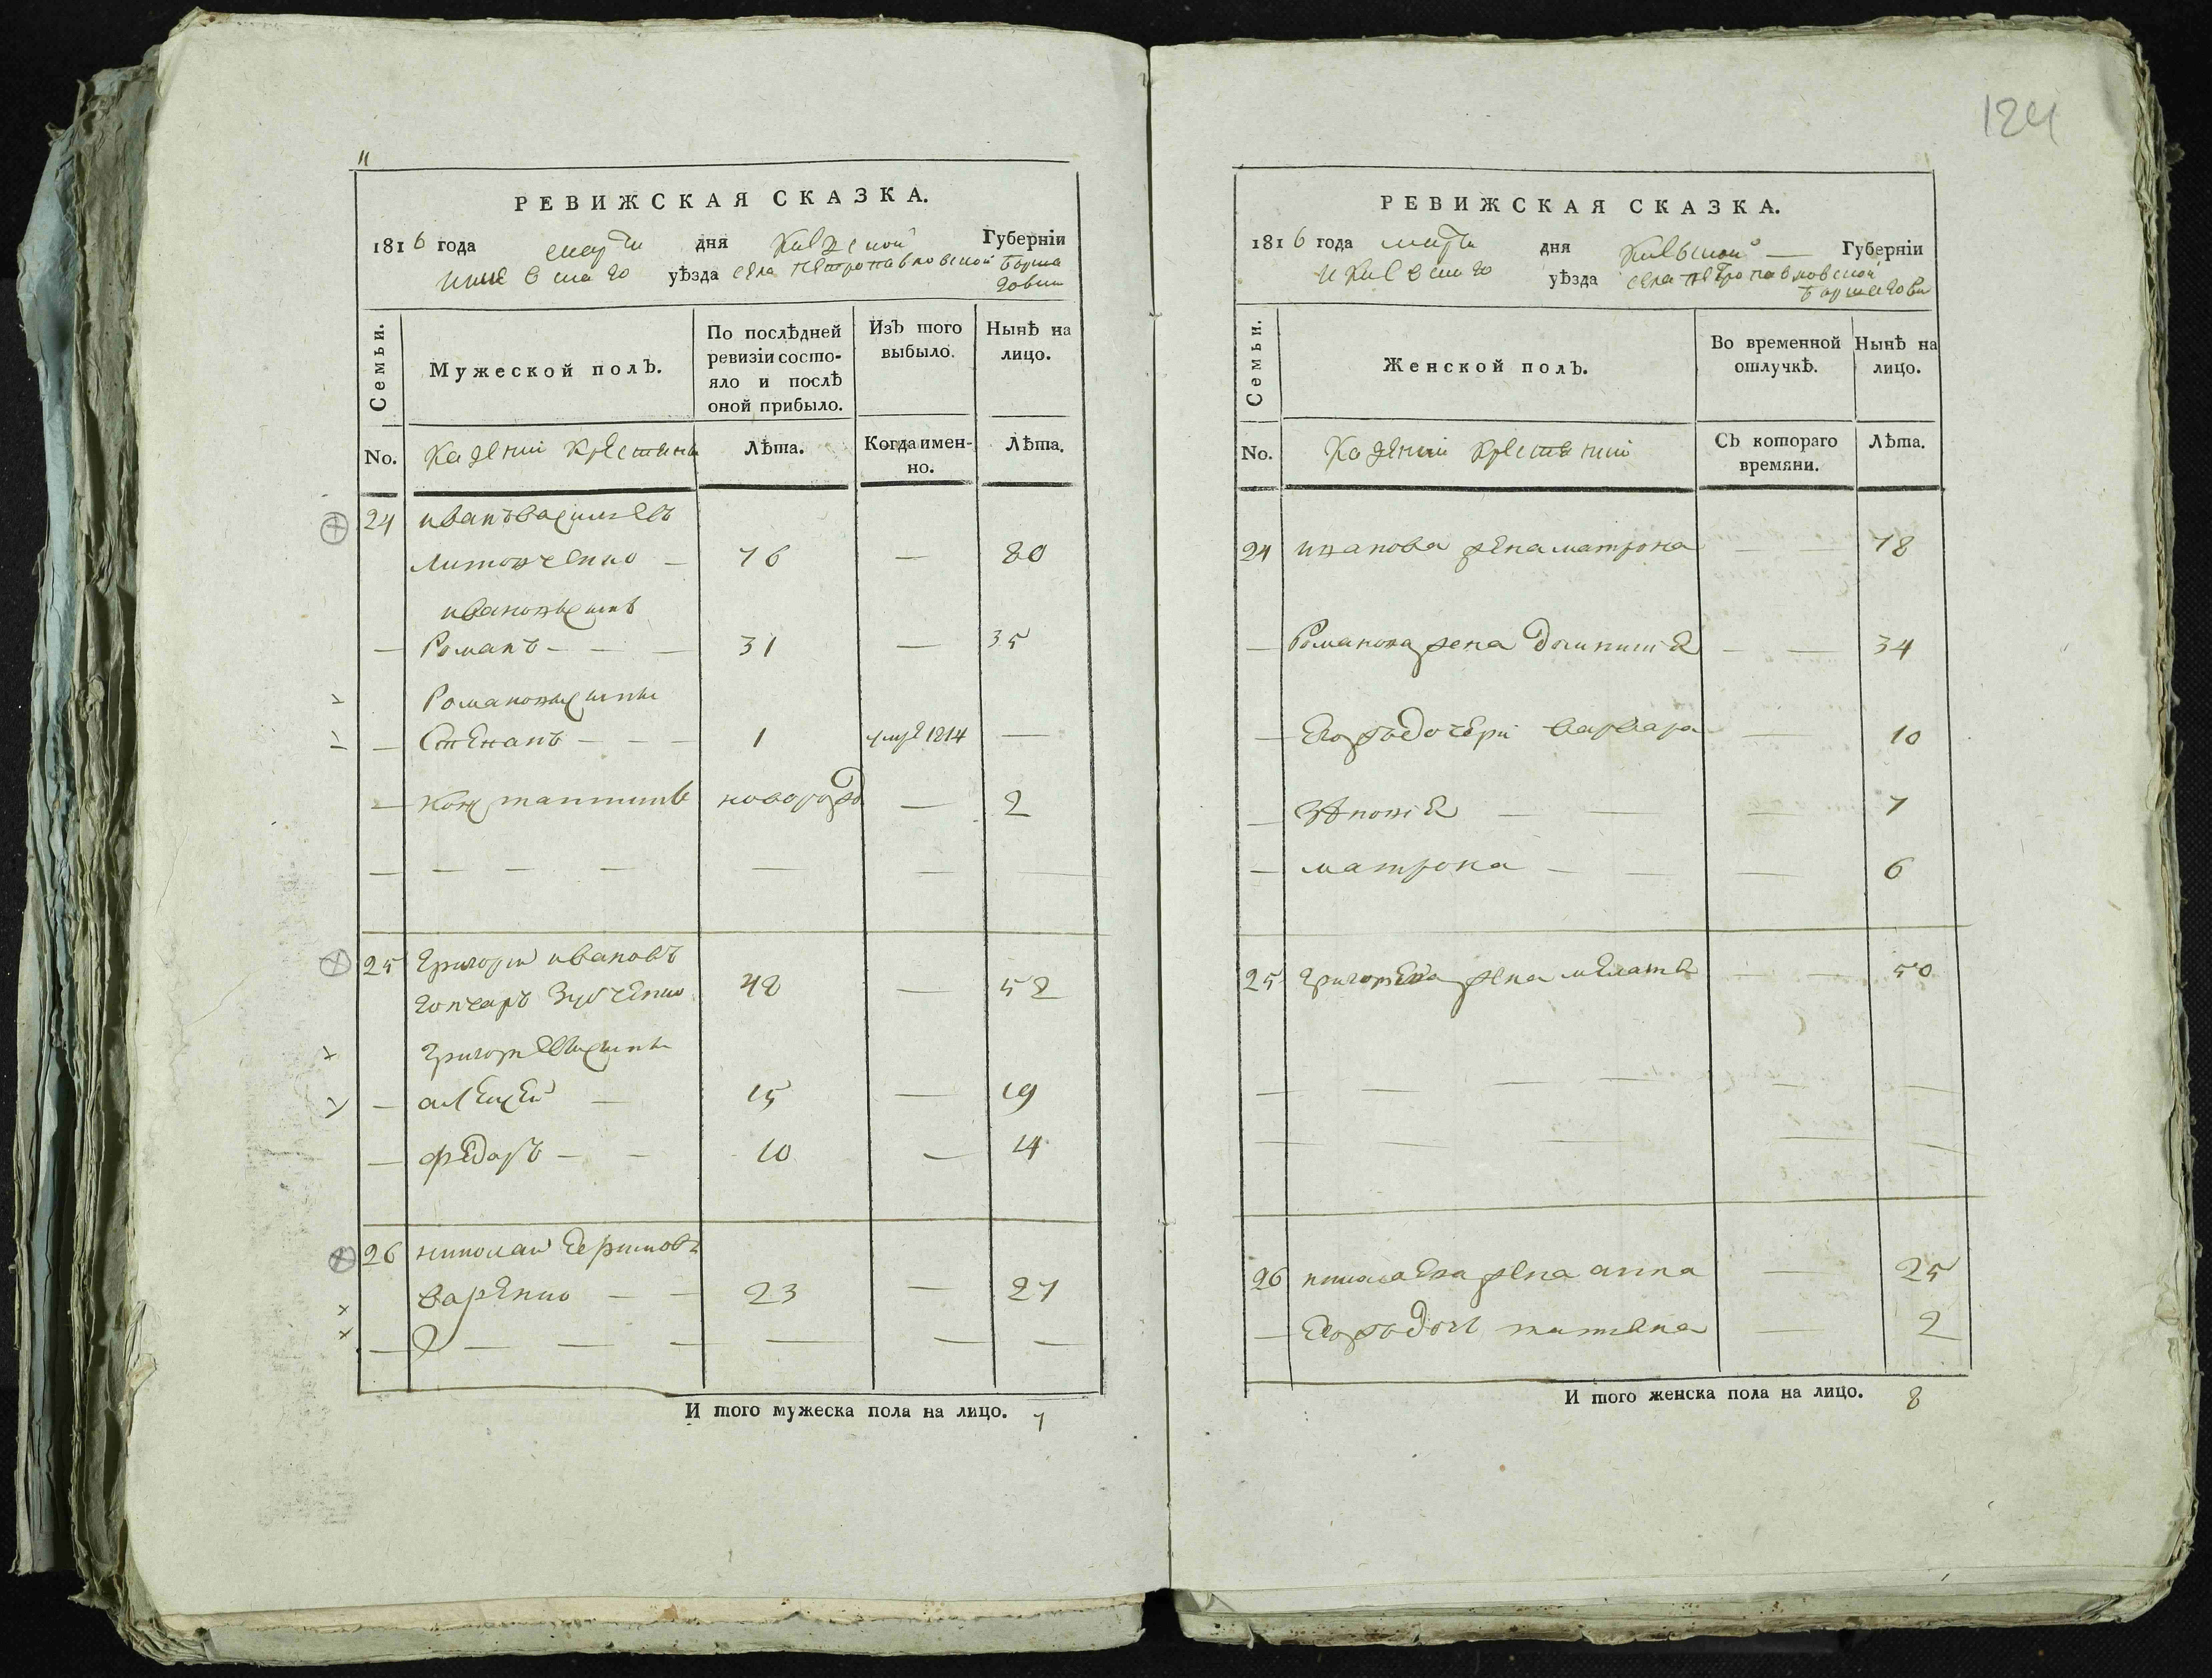 11
РЕВИЖСКАЯ СКАЗКА.
1816 года марта дня Киевской Губерніи
и Киевскаго уѣзда села Петропавловской Борща
говки
Семьи.
Мужеской полЪ.
По послѣдней
ревизіи состо-
яло и послѣ
оной прибыло.
ИзЪ того
выбыло.
Нынѣ на
лицо.
No.
Казенніи крестяни
Лѣта.
Когда имен-
но.
Лѣта.
24 иванъ васильевъ
литовченко — 76 — 80
ивановъ синъ
— Романъ — — — 31 — 35
Романовы сины
— Степанъ — — — 1 умре 1814 —
— Константинъ новорожд — 2
— — — — — — — —
25 григорій ивановъ
гончаръ зубченко 48 — 52
григориевы сины
— алексей — 15 — 19
— федоръ — — 10 — 14
26 николай ефимовъ
варенко — — 23 — 27
— — — — — — —
И того мужеска пола на лицо. 7
124
РЕВИЖСКАЯ СКАЗКА.
1816 года марта дня Киевской — Губерніи
и Киевскаго уѣзда села Петропавловской
Борщаговки
Семьи.
Женской полЪ.
Во временной
отлучкѣ.
Нынѣ на
лицо.
No.
Казенніи крестяніи
СЪ котораго
времяни.
Лѣта.
24 иванова жена матрона — — 78
— Романова жена Домникия — — 34
— Егожъ дочери варвара — 10
— — — — 7
— матрона — — — 6
25 григориева жена мелания — — 50
— — — — — —
— — — — — —
26 николаева жена анна — 25
— Егожъ дочь татяна — 2
И того женска пола на лицо. 8